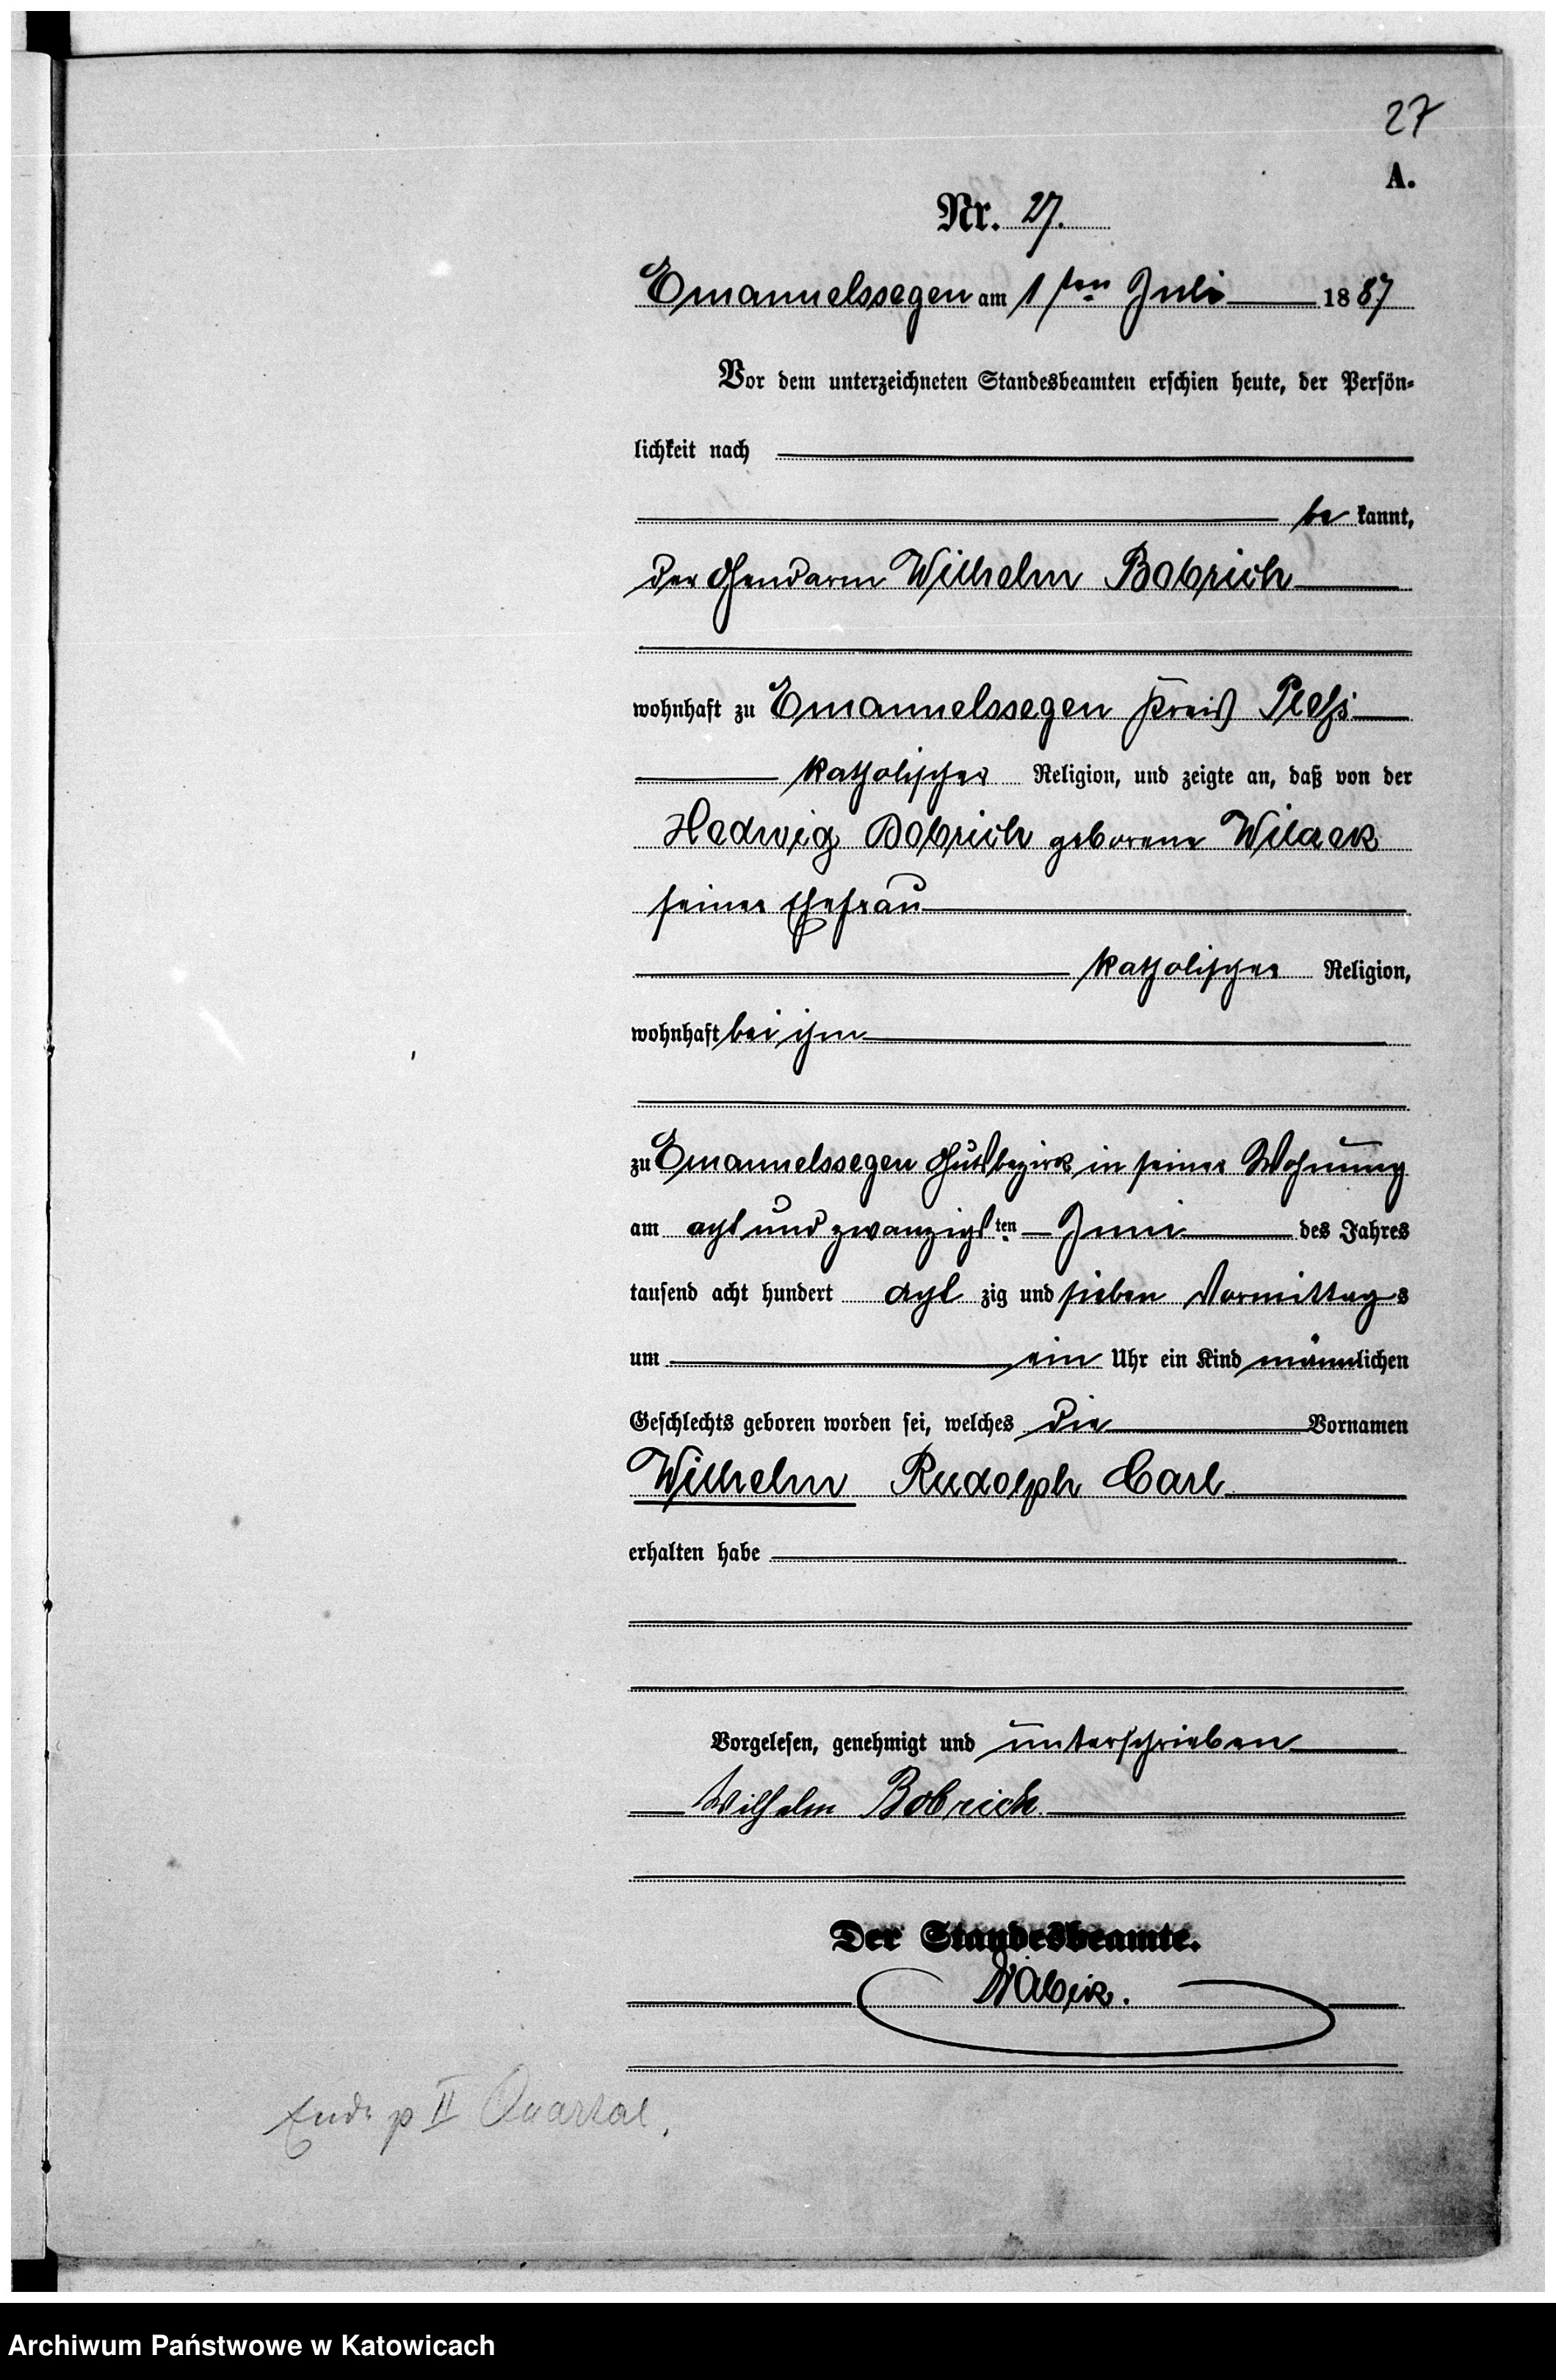 27
A.
Nr. 27.
Emanuelssegen am 1ten Juli 1887
Vor dem unterzeichneten Standesbeamten erschien heute, der Persön-
lichkeit nach
be kannt,
der Gendarm Wilhelm Bobrich
wohnhaft zu Emanuelssegen Kreis Pleß
katholischer Religion, und zeigte an, daß von der
Hedwig Bobrich geborene
seiner Ehefrau
katholischer Religion,
wohnhaft bei ihm
zu Emanuelssegen Gutsbezirk in seiner Wohnung
am acht und zwanzigsten Juni des Jahres
tausend acht hundert acht zig und sieben Vormittags
um ein Uhr ein Kind männlichen
Geschlechts geboren worden sei, welches die Vornamen
Wilhelm Rudolph Carl
erhalten habe
Vorgelesen, genehmigt und unterschrieben
Wilhelm Bobrich
Der Standesbeamte.
Ende p II Quartal.
Archiwum Państwowe w Katowicach